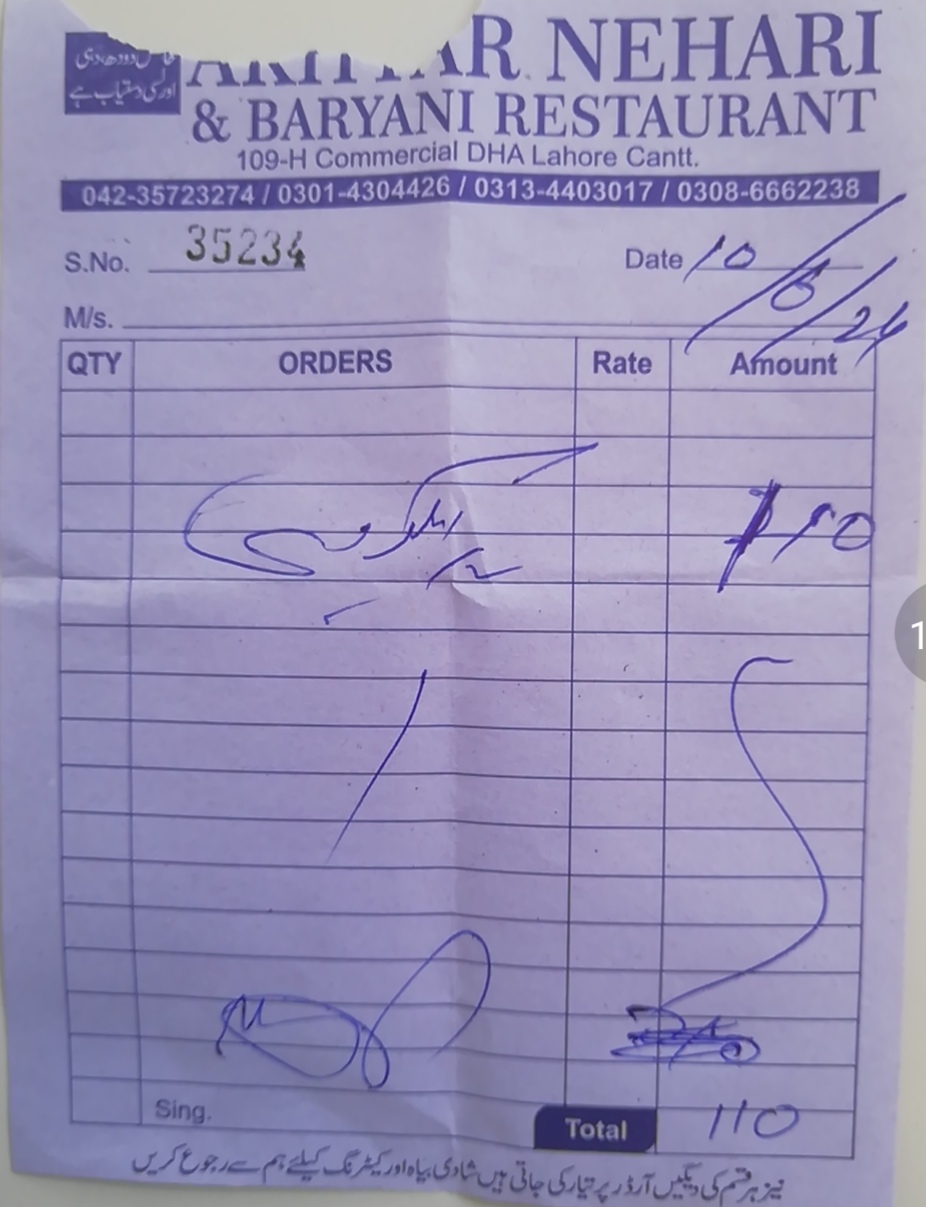 خالص دودھ دہی
اور لسی دستیاب ہے
NEHARI
& BARYANI RESTAURANT
109-H Commercial DHA Lahore Cantt.
042-35723274 / 0301-4304426 / 0313-4403017 / 0308-6662238
S.No. 35234 Date 10/6/24
M/s.
QTY ORDERS Rate Amount
110
Sing. Total 110
نیز ہر قسم کی دیگیں آرڈر پر تیار کی جاتی ہیں شادی بیاہ اور کیٹرنگ کیلئے ہم سے رجوع کریں
1